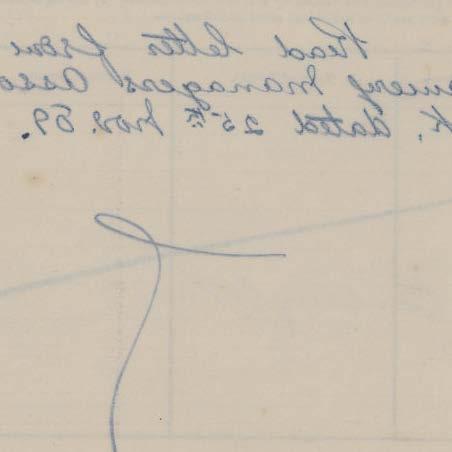 Read letter from
Managers Asso
K. dated 25th Nov. 59.